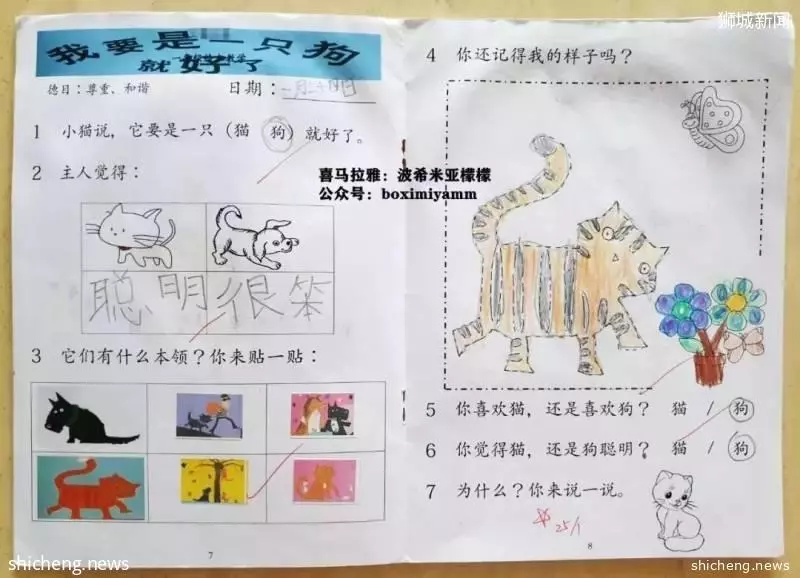 狮城新闻
我要是一只狗
就好了
德目：尊重、和谐 日期：一月二十四日
1 小猫说，它要是一只（猫 狗）就好了。
2 主人觉得：
聪明 很笨
3 它们有什么本领？你来贴一贴：
7
4 你还记得我的样子吗？
喜马拉雅：波希米亚檬檬
公众号：boximiyamm
5 你喜欢猫，还是喜欢狗？ 猫 / 狗
6 你觉得猫，还是狗聪明？ 猫 / 狗
7 为什么？你来说一说。
25/1
8
shicheng.news
shicheng.news